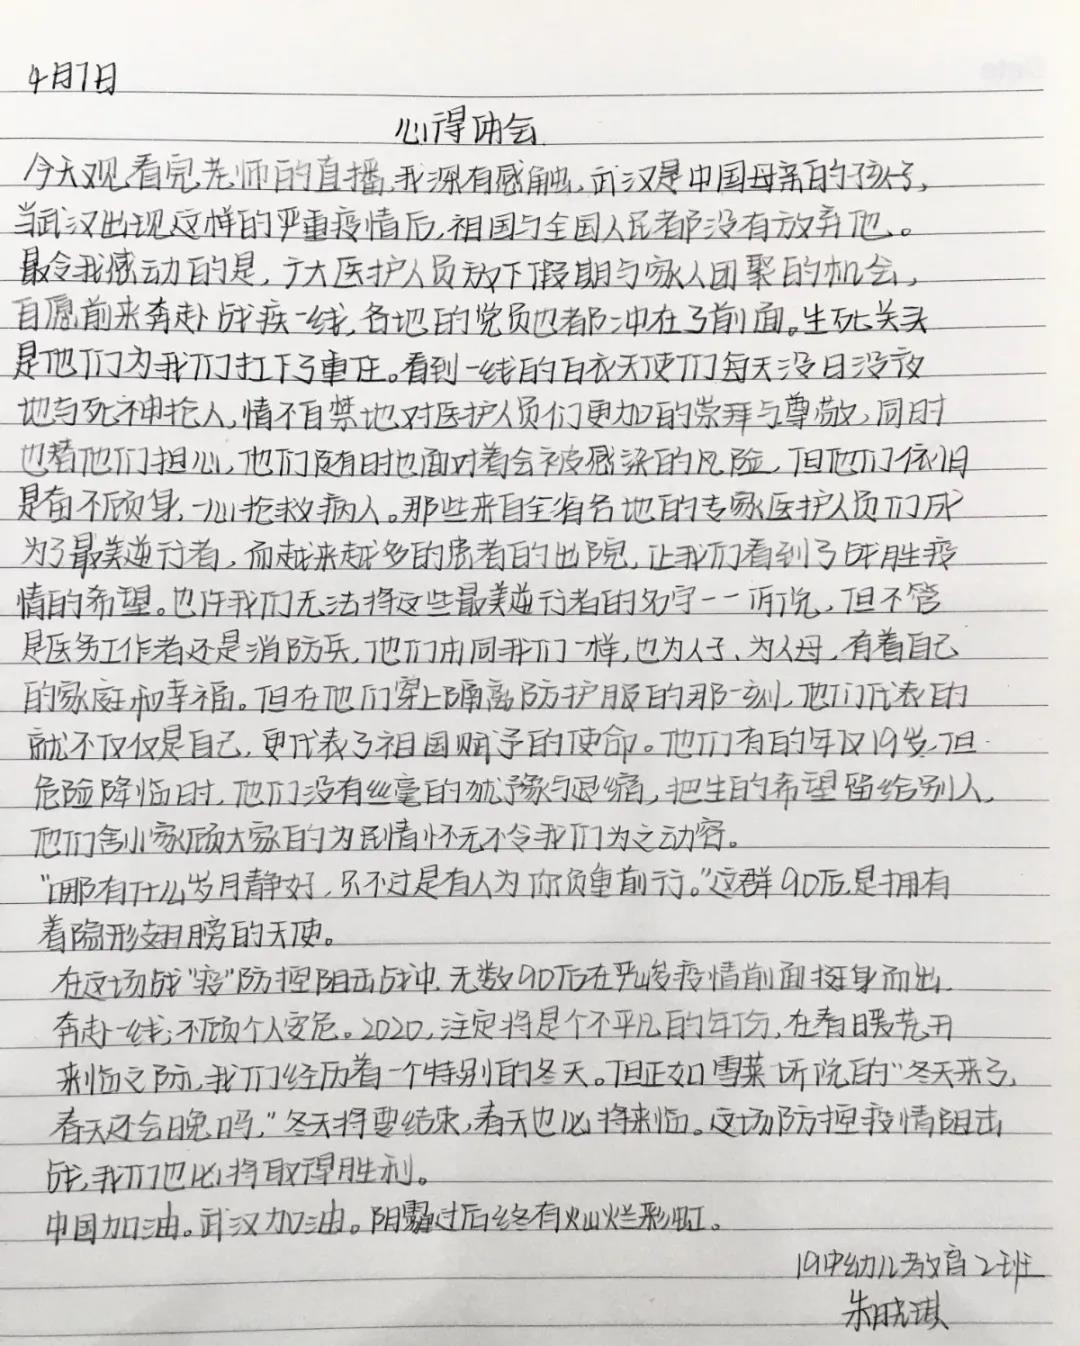 4月7日
心得体会
今天观看完老师的直播,我深有感触,武汉是中国母亲的孩子,
当武汉出现这样的严重疫情后,祖国与全国人民都没有放弃他。
最令我感动的是,广大医护人员放下假期与家人团聚的机会,
自愿前来奔赴战疾一线,各地的党员也都冲在了前面。生死关头
是他们为我们扛下了重任。看到一线的白衣天使们每天没日没夜
地与死神抢人,情不自禁地对医护人员们更加的崇拜与尊敬,同时
也替他们担心,他们随时也面对着会被感染的风险,但他们依旧
是奋不顾身,一心抢救病人。那些来自全省各地的专家医护人员们成
为了最美逆行者,而越来越多的患者的出院,让我们看到了战胜疫
情的希望。也许我们无法将这些最美逆行者的名字一一听说,但不管
是医务工作者还是消防兵,他们由同我们一样,也为人子、为人母,有着自己
的家庭和幸福。但在他们穿上隔离防护服的那一刻,他们代表的
就不仅仅是自己,更代表了祖国赋予的使命。他们有的年仅19岁,但
危险降临时,他们没有丝毫的犹豫与退缩,把生的希望留给别人,
他们舍小家顾大家的为民情怀无不令我们为之动容。
“哪有什么岁月静好,只不过是有人为你负重前行。”这群90后,是拥有
着隐形翅膀的天使。
在这场战“疫”防控阻击战中,无数90后在严峻疫情前面挺身而出,
奔赴一线,不顾个人安危。2020,注定将是个不平凡的年份,在春暖花开
来临之际,我们经历着一个特别的冬天。但正如雪莱所说的“冬天来了,
春天还会晚吗,”冬天将要结束,春天也必将来临。这场防控疫情阻击
战,我们也必将取得胜利。
中国加油。武汉加油。阴霾过后终有灿烂彩虹。
19中幼儿教育2班
朱晓琪